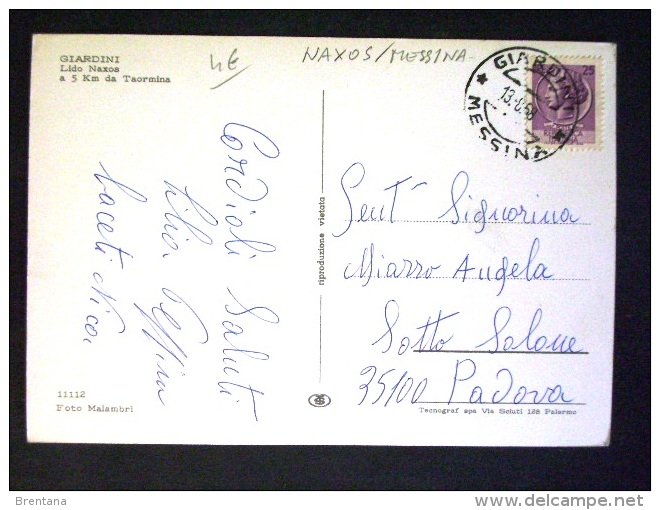 GIARDINI
Lido Naxos
a 5 Km da Taormina
4€
NAXOS/MESSINA
GIARDINI
13.8
MESSINA
25
Cordiali Saluti
riproduzione vietata
Gent Signorina
Miazzo Angela
Sotto Salone
35100 Padova
11112
Foto Malambrì
Tecnograf spa Via Sciuti 128 Palermo
Brentana
delcampe.net